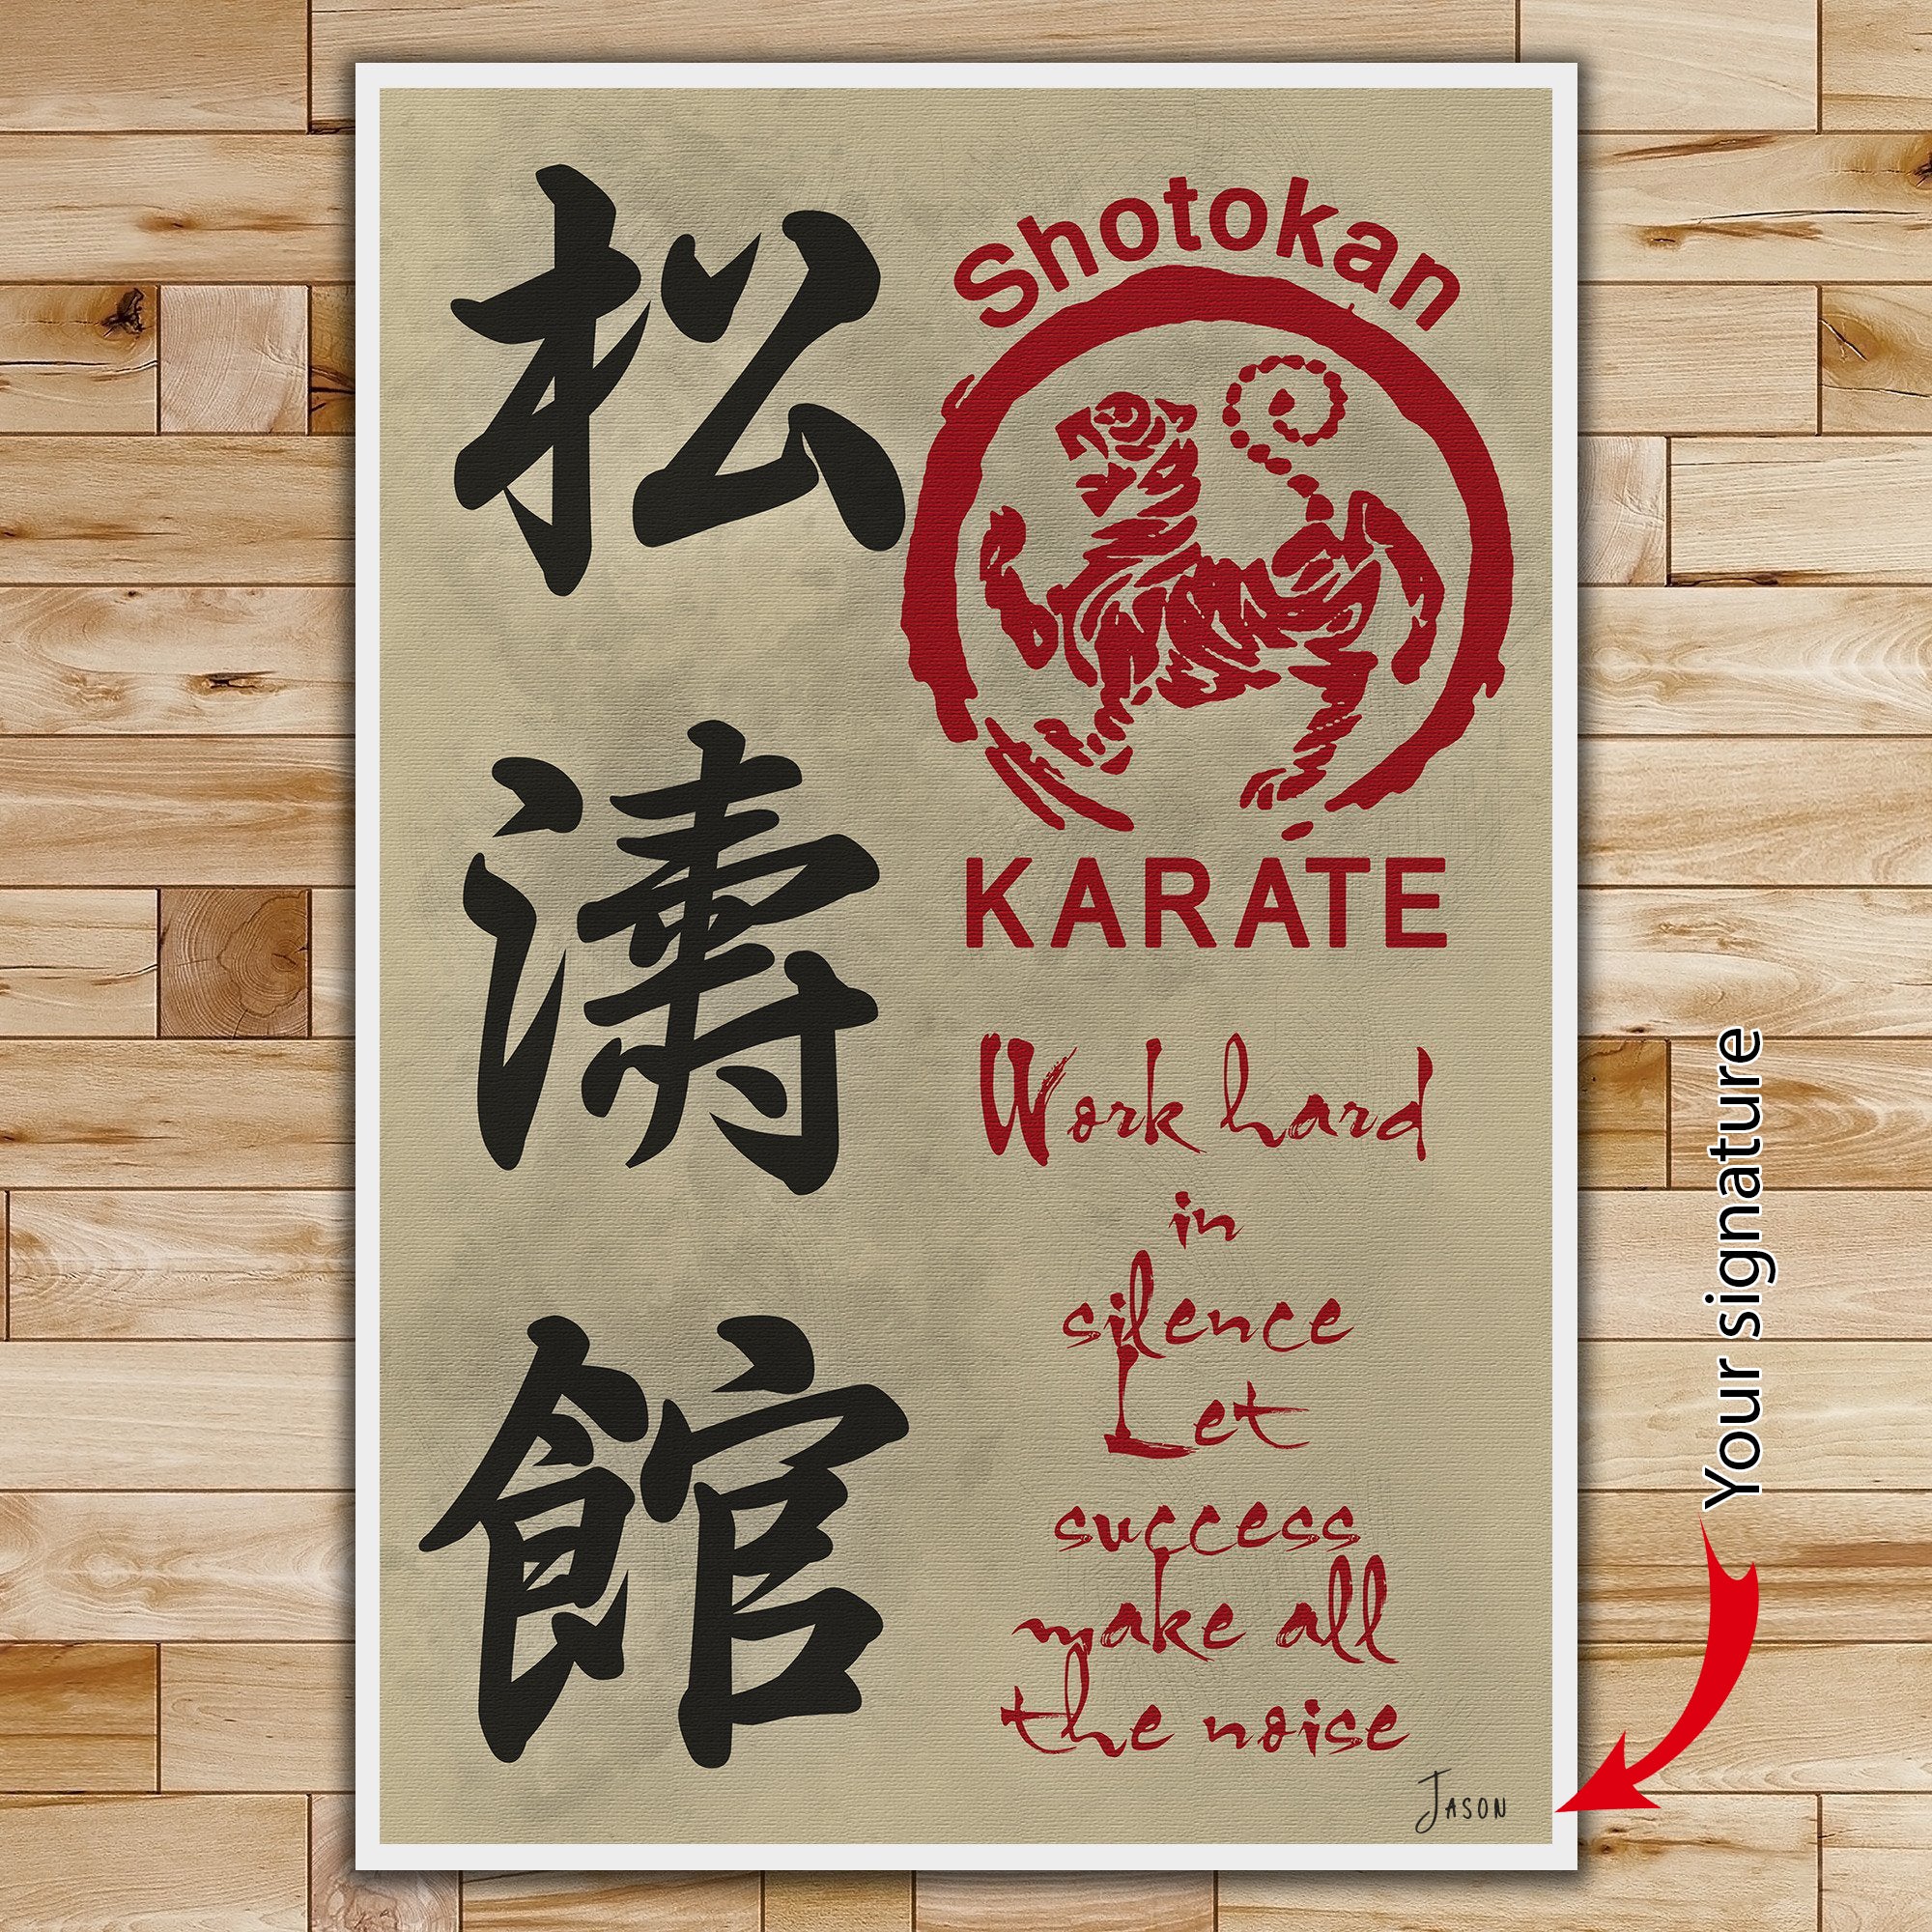 松
濤
館
Shotokan
KARATE
Work hard
in
silence
Let
success
make all
the noise
JASON
Your signature